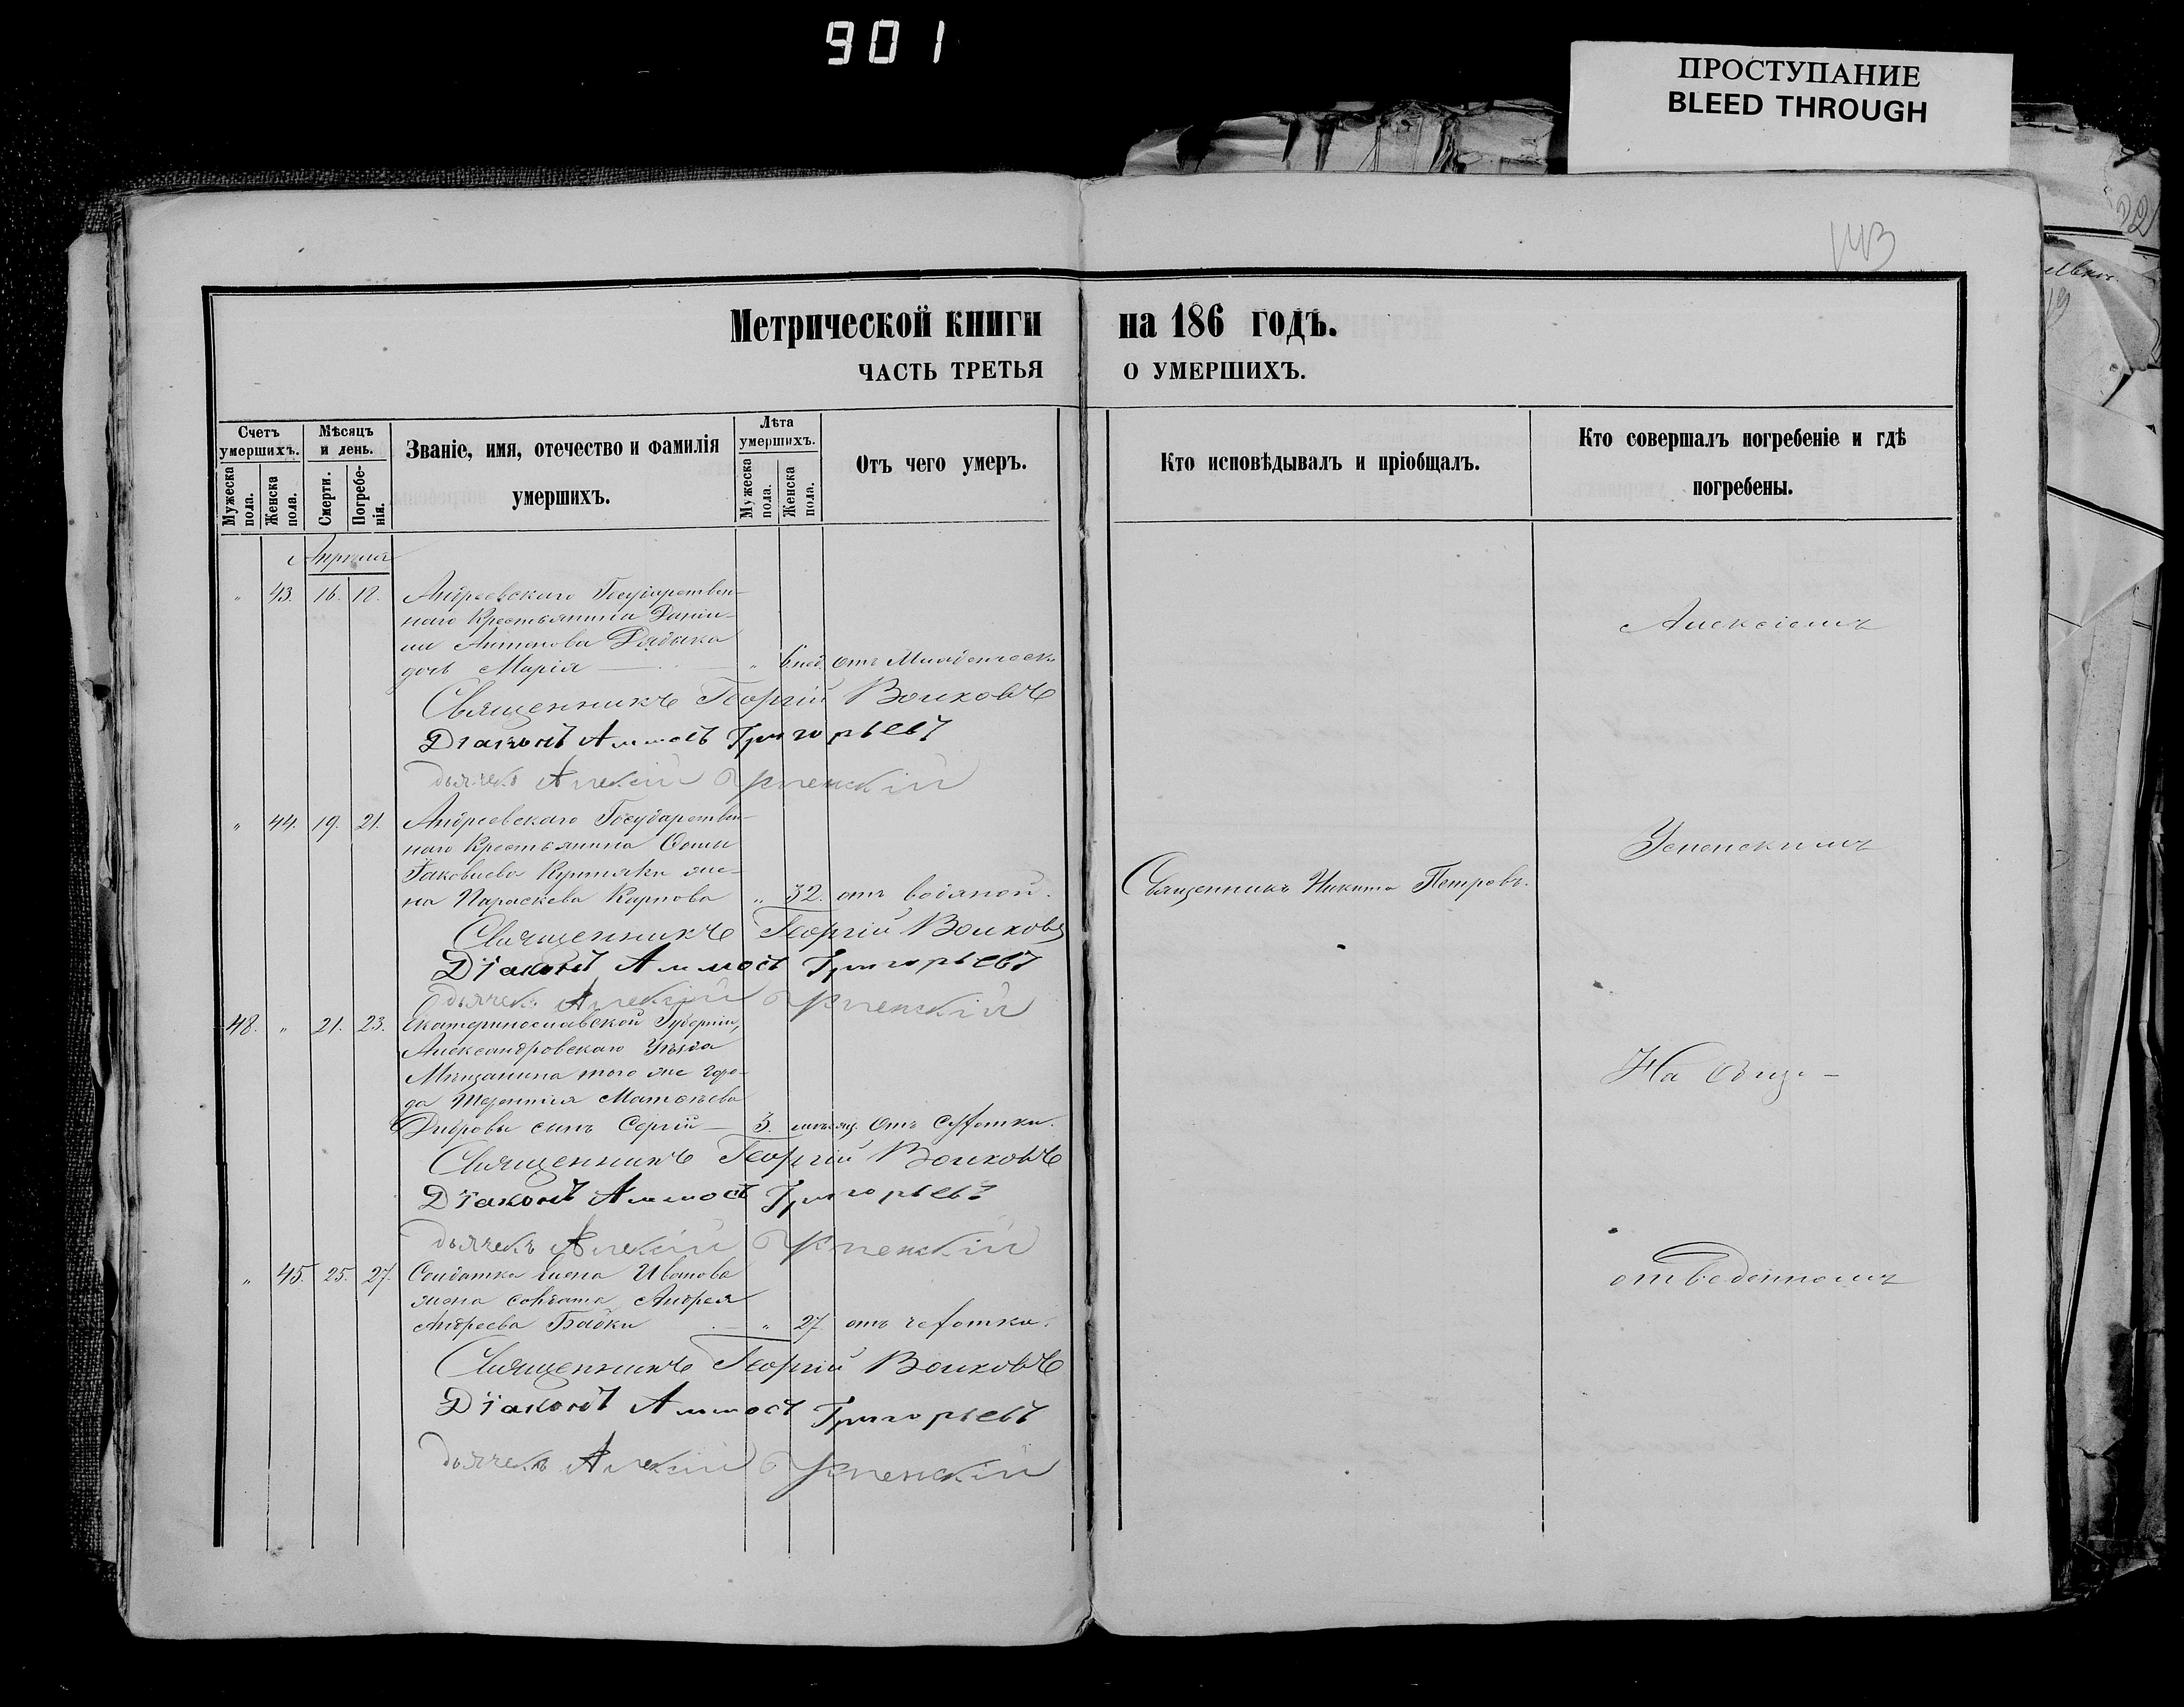 901
ПРОСТУПАНИЕ
BLEED THROUGH
143
Метрической книги на 186 годъ.
ЧАСТЬ ТРЕТЬЯ О УМЕРШИХЪ.
Счетъ умершихъ.
Мужеска пола.
Женска пола.
Мѣсяцъ и день.
Смерти.
Погребенія.
Званіе, имя, отечество и фамилія умершихъ.
Лѣта умершихъ.
Мужеска пола.
Женска пола.
Отъ чего умеръ.
Кто исповѣдывалъ и пріобщалъ.
Кто совершалъ погребеніе и гдѣ погребены.
Апрѣля
" 43. 16. 18. Андреевскаго Государствен-
наго Крестьянина Дании-
ла Антонова
дочь Марія — " 6 нед. отъ Младенческ.
Священникъ Георгій Волковъ
Діаконъ Аммосъ Григорьевъ
дьячекъ Алексій Успенскій
Алексіемъ
" 44. 19. 21. Андреевскаго Государствен-
наго Крестьянина Фомы
Іаковлева же-
на Параскева Карпова " 32. отъ водяной.
Священникъ Никита Петровъ.
Священникъ Георгій Волковъ
Діаконъ Аммосъ Григорьевъ
дьячекъ Алексій Успенскій
Успенскимъ
48. " 21. 23. Екатеринославской Губерніи,
Александровскаго Уѣзда
Мѣщанина того же горо-
да Терентія Матвѣева
сынъ Сергій — 3. мѣсяц. Отъ сухотки.
Священникъ Георгій Волковъ
Діаконъ Аммосъ Григорьевъ
дьячекъ Алексій Успенскій
На общ. —
" 45. 25. 27. Солдатка Иванова
жена солдата Андрея
Андреева Бабки — " 27. отъ чахотки.
Священникъ Георгій Волковъ
Діаконъ Аммосъ Григорьевъ
дьячекъ Алексій Успенскій
отведенномъ